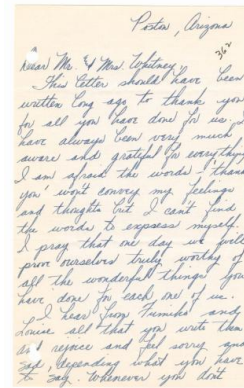 Poston, Arizona
362
Dear Mr. & Mrs. Whitney,
This letter should have been
written long ago to thank you
for all you have done for us. I
have always been very much
aware and grateful for everything.
I am afraid the words "thank
you" won't convey my feelings
and thoughts but I can't find
the words to express myself.
I pray that one day we will
prove ourselves truly worthy of
all the wonderful things you
have done for each one of us.
I hear from Fumiko and
Louise all that you write them
and rejoice and feel sorry and
sad, depending what you have
to say. Whenever you don't